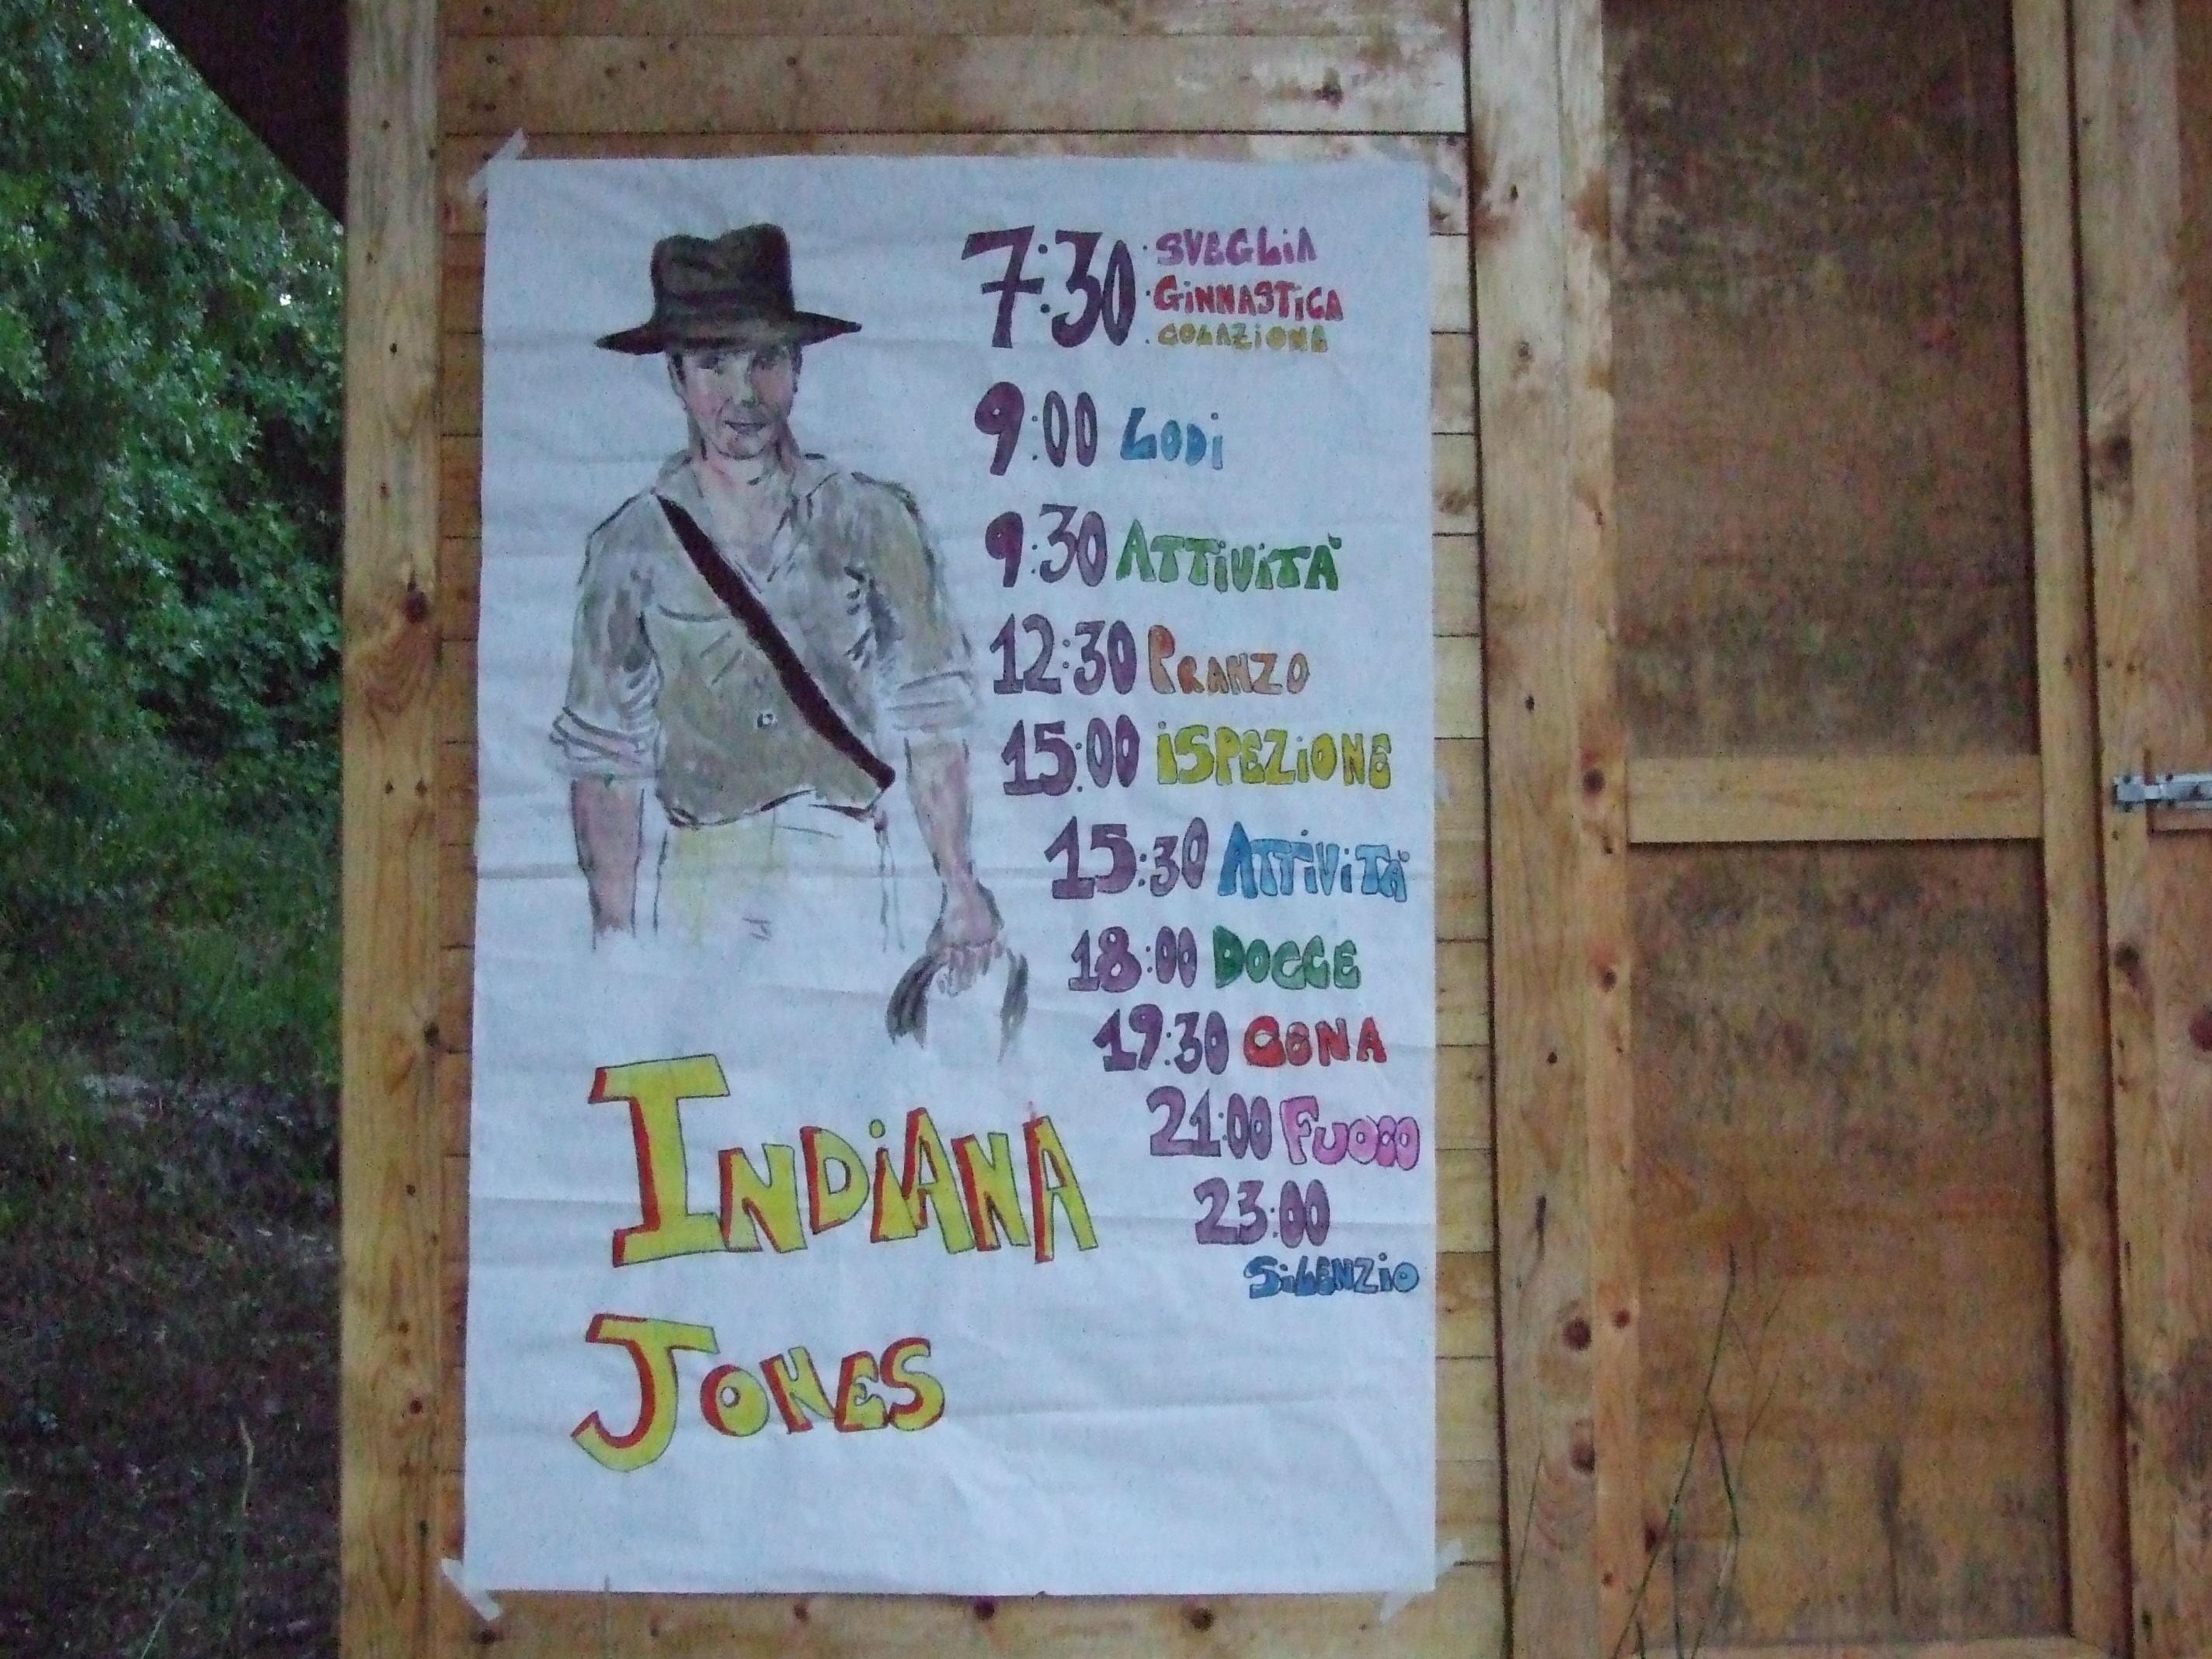 7:30 SVEGLIA
GINNASTICA
COLAZIONE
9:00 LODI
9:30 ATTIVITÀ
12:30 PRANZO
15:00 ISPEZIONE
15:30 ATTIVITÀ
18:00 DOCCE
19:30 CENA
21:00 FUOCO
23:00
SILENZIO
INDIANA
JONES